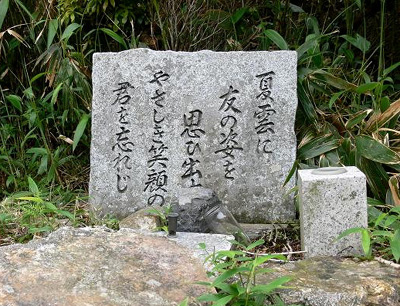 夏雲に
友の姿を
思ひ出し
やさしき笑顔の
君を忘れじ